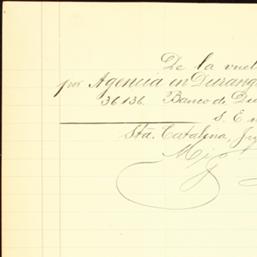 De la vuel
por Agencia in Durang
36136 Banco de Du
S. E
Sta. Catalina,